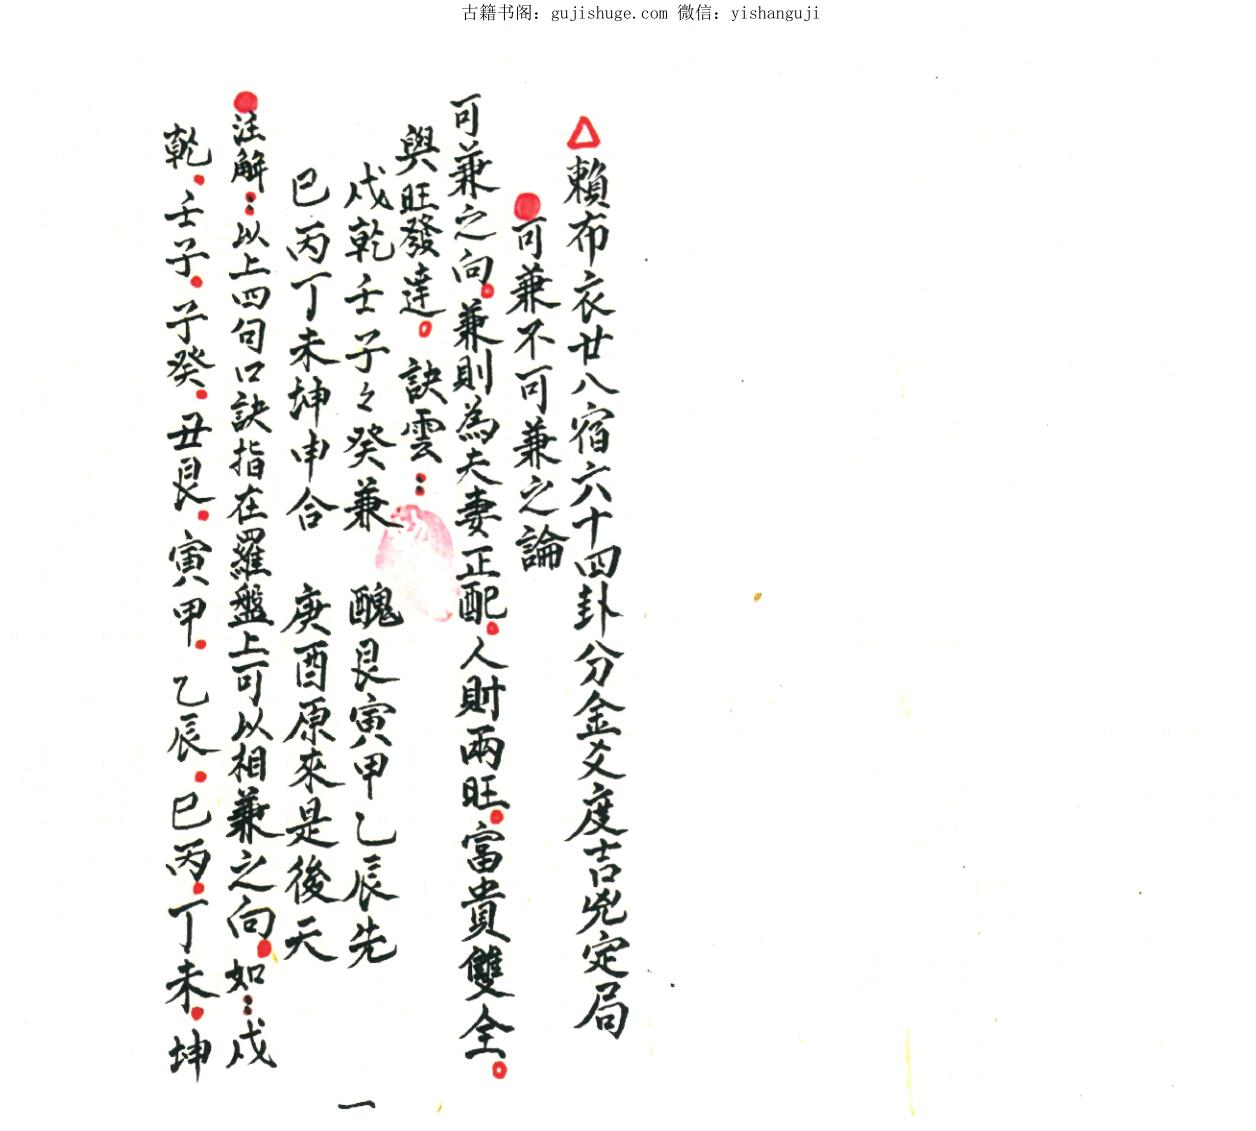 古籍书阁：gujishuge.com 微信：yishanguji
△賴布衣廿八宿六十四卦分金爻度吉兇定局
●可兼不可兼之論
可兼之向。兼則為夫妻正配。人財兩旺。富貴雙全。
與旺發達。訣雲：
戌乾壬子々癸兼 醜艮寅甲乙辰先
巳丙丁未坤申合 庚酉原來是後天
●注解：以上四句口訣指在羅盤上可以相兼之向。如：戌
乾。壬子。子癸。丑艮。寅甲。乙辰。巳丙。丁未。坤
一